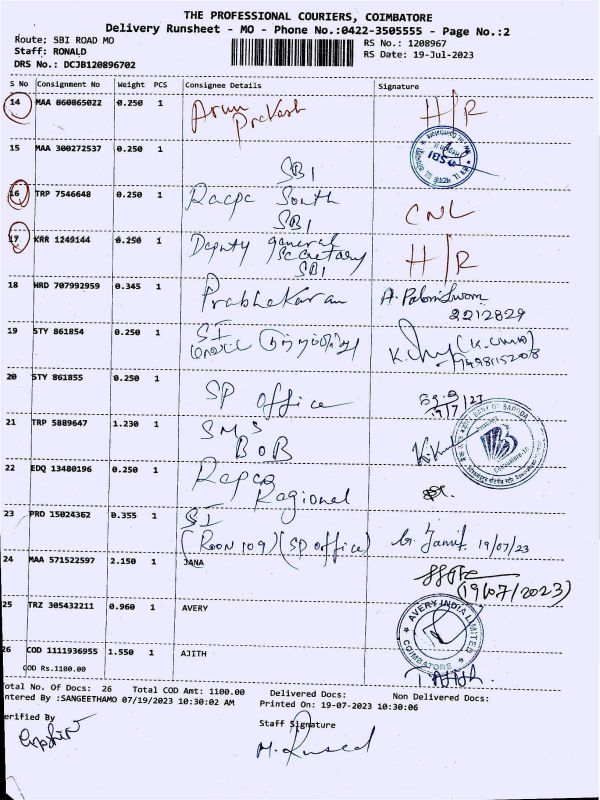 THE PROFESSIONAL COURIERS, COIMBATORE
Delivery Runsheet - MO - Phone No.:0422-3505555 - Page No.:2
Route; SBI ROAD MO
RS No.: 1208967
Staff: RONALD
RS Date: 19-Jul-2023
DRS No.: DCJB120896702
S No Consignment No Weight PCS Consignee Details Signature
14 MAA 860865022 0.250 1 Arun Prakash H/R
15 MAA 300272537 0.250 1 SBI
16 TRP 7546648 0.250 1 Racpc South SBI CNL
17 KRR 1249144 0.250 1 Deputy general Secretary SBI H/R
18 HRD 707992959 0.345 1 Prabhakaran
2212829
19 STY 861854 0.250 1 SI
20 STY 861855 0.250 1 SP office 19/7/23
21 TRP 5889647 1.230 1 SMS BOB
BANK OF BARODA
22 EDQ 13480196 0.250 1 Ragional
23 PRO 15024362 0.355 1 SI
(Room 109) (SP office) 19/07/23
24 MAA 571522597 2.150 1 JANA
(19/07/2023)
25 TRZ 305432211 0.960 1 AVERY
AVERY INDIA LIMITED
COIMBATORE
26 COD 1111936955 1.550 1 AJITH
COD Rs.1100.00
T. Ajith
Total No. Of Docs: 26 Total COD Amt: 1100.00 Delivered Docs: Non Delivered Docs:
ntered By :SANGEETHAMO 07/19/2023 10:30:02 AM Printed On: 19-07-2023 10:30:06
erified By
Staff Signature